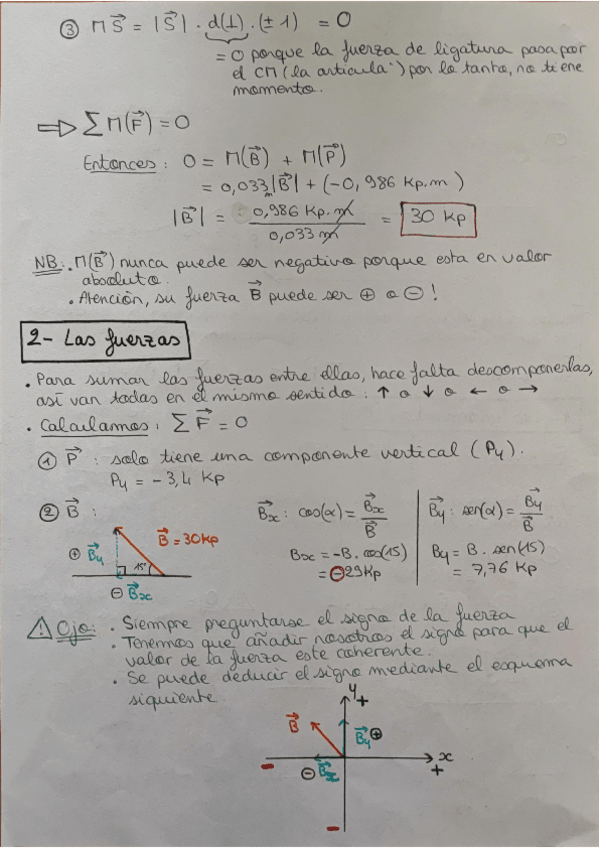 ③ M S⃗ = |S⃗| . d(⊥) . (± 1) = 0
= 0 porque la fuerza de ligatura pasa por
el CM (la articula°) por lo tanto, no tiene
momento.
⇒ ∑ M(F⃗) = 0
Entonces : 0 = M(B⃗) + M(P⃗)
= 0,033 m |B⃗| + (-0,986 Kp.m)
|B⃗| = 0,986 Kp.m / 0,033 m = 30 Kp
NB: . M(B⃗) nunca puede ser negativo porque esta en valor
absoluto.
. Atención, su fuerza B⃗ puede ser ⊕ o ⊖ !
2- Las fuerzas
. Para sumar las fuerzas entre ellas, hace falta descomponerlas,
así van todas en el mismo sentido : ↑ o ↓ o ← o →
. Calculamos : ∑ F⃗ = 0
① P⃗ : solo tiene una componente vertical (Py).
Py = - 3,4 Kp
② B⃗ :
B⃗ = 30Kp
⊕ B⃗y
15°
⊖ B⃗x
B⃗x : cos(α) = B⃗x / B⃗
Bx = -B. cos(15)
= -29Kp
B⃗y : sen(α) = B⃗y / B⃗
By = B . sen(15)
= 7,76 Kp
⚠ Ojo: . Siempre preguntarse el signo de la fuerza
. Tenemos que añadir nosotros el signo para que el
valor de la fuerza este coherente.
. Se puede deducir el signo mediante el esquema
siguiente.
y +
B⃗
B⃗y ⊕
x
+
-
⊖ B⃗x
-